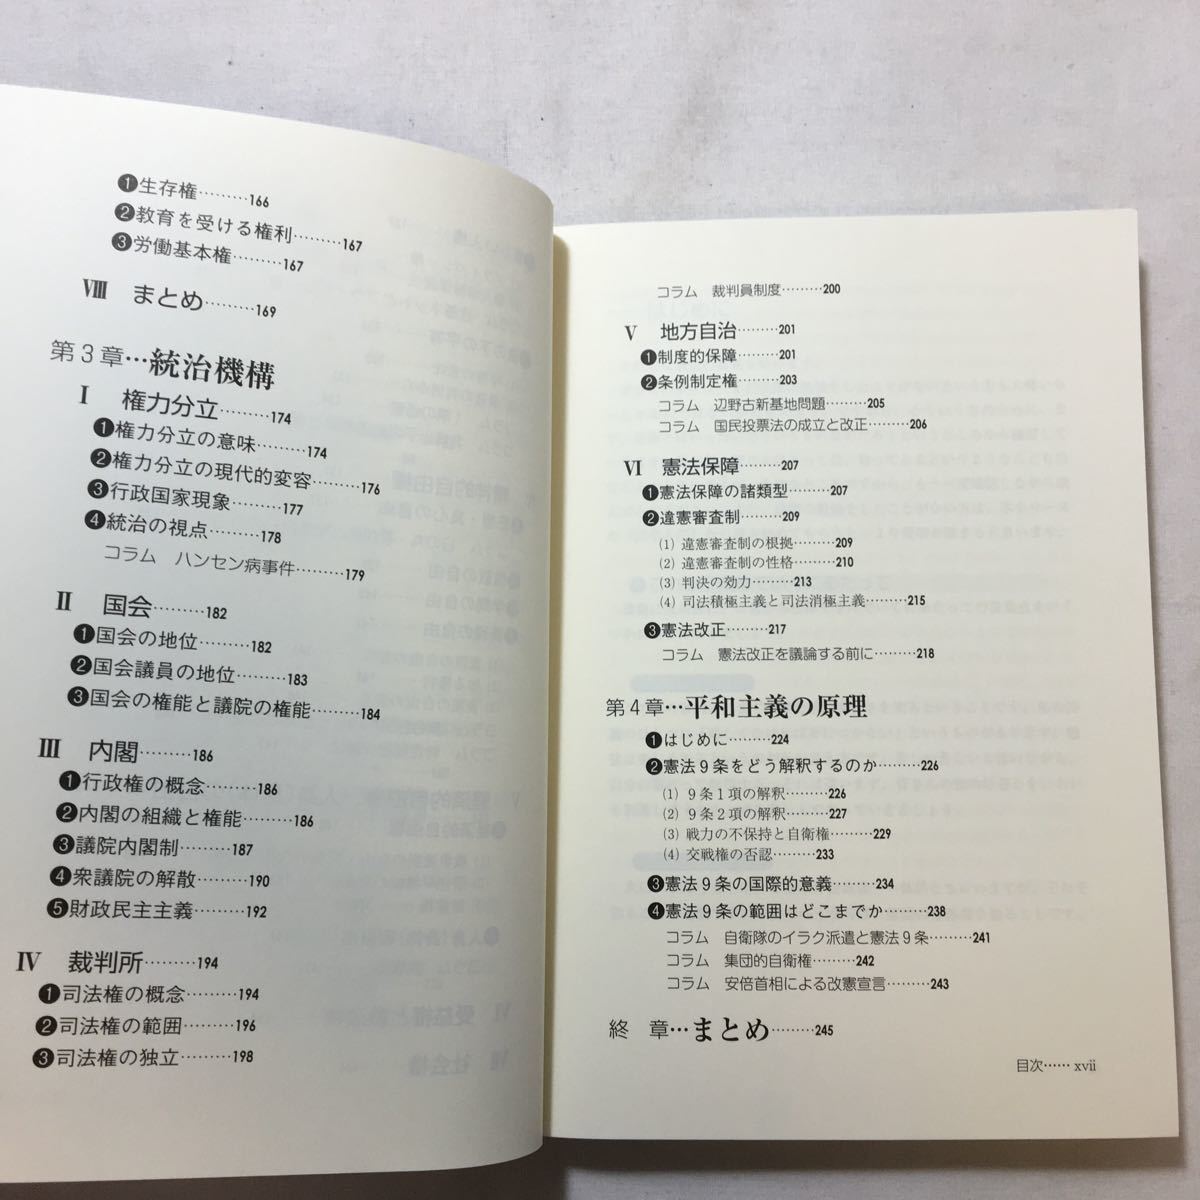 ❶生存権………166
❷教育を受ける権利………167
❸労働基本権………167
Ⅷ まとめ………169
第3章…統治機構
Ⅰ 権力分立………174
❶権力分立の意味………174
❷権力分立の現代的変容………176
❸行政国家現象………177
❹統治の視点………178
コラム ハンセン病事件………179
Ⅱ 国会………182
❶国会の地位………182
❷国会議員の地位………183
❸国会の権能と議院の権能………184
Ⅲ 内閣………186
❶行政権の概念………186
❷内閣の組織と権能………186
❸議院内閣制………187
❹衆議院の解散………190
❺財政民主主義………192
Ⅳ 裁判所………194
❶司法権の概念………194
❷司法権の範囲………196
❸司法権の独立………198
コラム 裁判員制度………200
Ⅴ 地方自治………201
❶制度的保障………201
❷条例制定権………203
コラム 辺野古新基地問題………205
コラム 国民投票法の成立と改正………206
Ⅵ 憲法保障………207
❶憲法保障の諸類型………207
❷違憲審査制………209
(1) 違憲審査制の根拠………209
(2) 違憲審査制の性格………210
(3) 判決の効力………213
(4) 司法積極主義と司法消極主義………215
❸憲法改正………217
コラム 憲法改正を議論する前に………218
第4章…平和主義の原理
❶はじめに………224
❷憲法9条をどう解釈するのか………226
(1) 9条1項の解釈………226
(2) 9条2項の解釈………227
(3) 戦力の不保持と自衛権………229
(4) 交戦権の否認………233
❸憲法9条の国際的意義………234
❹憲法9条の範囲はどこまでか………238
コラム 自衛隊のイラク派遣と憲法9条………241
コラム 集団的自衛権………242
コラム 安倍首相による改憲宣言………243
終 章…まとめ………245
目次……xvii